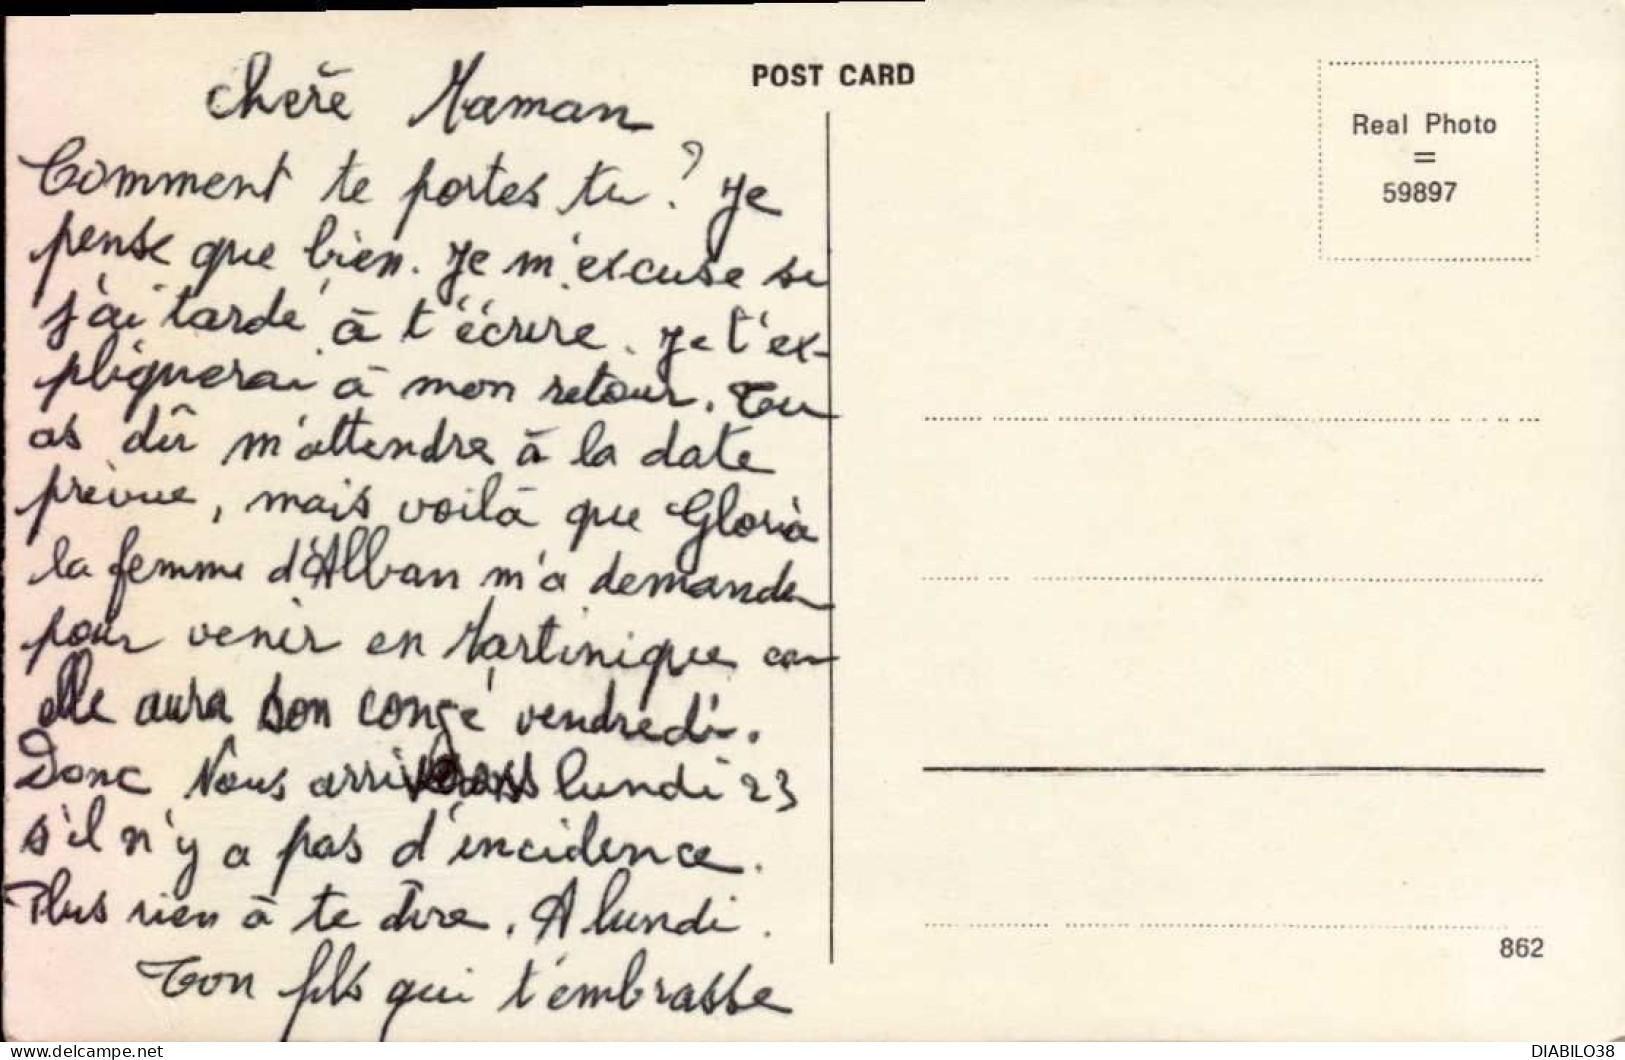 Chère Maman
Comment te portes tu? Je
pense que bien. Je m'excuse si
j'ai tardé à t'écrire. Je t'ex-
pliquerai à mon retour. Tu
as dû m'attendre à la date
prévue, mais voilà que Gloria
la femme d'Alban m'a demander
pour venir en Martinique car
elle aura son congé vendredi.
Donc Nous arriverons lundi 23
s'il n'y a pas d'incidence.
Plus rien à te dire. A lundi.
Ton fils qui t'embrasse
POST CARD
Real Photo
=
59897
862
DIABILO38